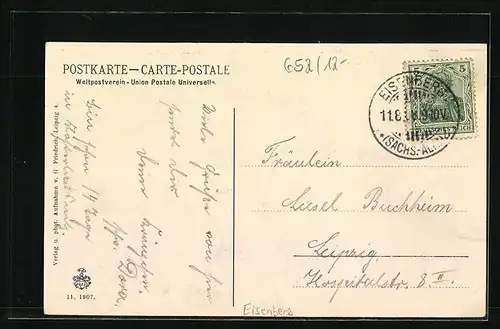 652/12-
POSTKARTE — CARTE-POSTALE
Weltpostverein - Union Postale Universelle
5
EISENBERG
11.8.
9-10V.
*(SACHS.-ALT.
REICH
Fräulein
Liesel Buchheim
Leipzig
Hospitalstr. 8 II.
Viele Grüße von hier
sendet dir
Deine
Bin schon 14 Tage
in
Verlag u. phot. Aufnahme v. G. Friedrich,
11, 1907.
Eisenberg